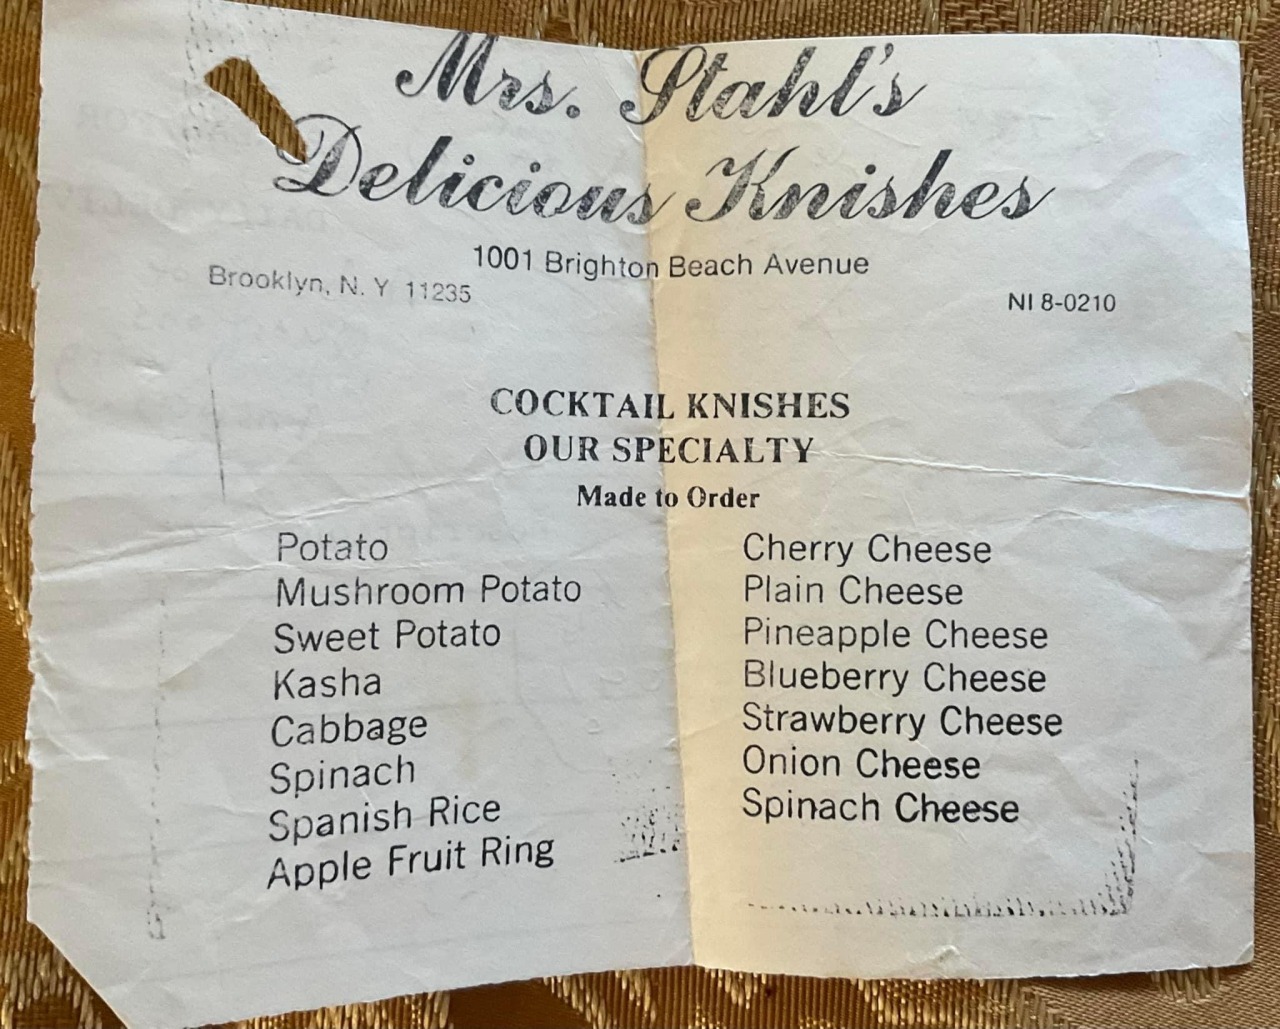 Mrs. Stahl's
Delicious Knishes
1001 Brighton Beach Avenue
Brooklyn, N. Y 11235
NI 8-0210
COCKTAIL KNISHES
OUR SPECIALTY
Made to Order
Potato
Mushroom Potato
Sweet Potato
Kasha
Cabbage
Spinach
Spanish Rice
Apple Fruit Ring
Cherry Cheese
Plain Cheese
Pineapple Cheese
Blueberry Cheese
Strawberry Cheese
Onion Cheese
Spinach Cheese